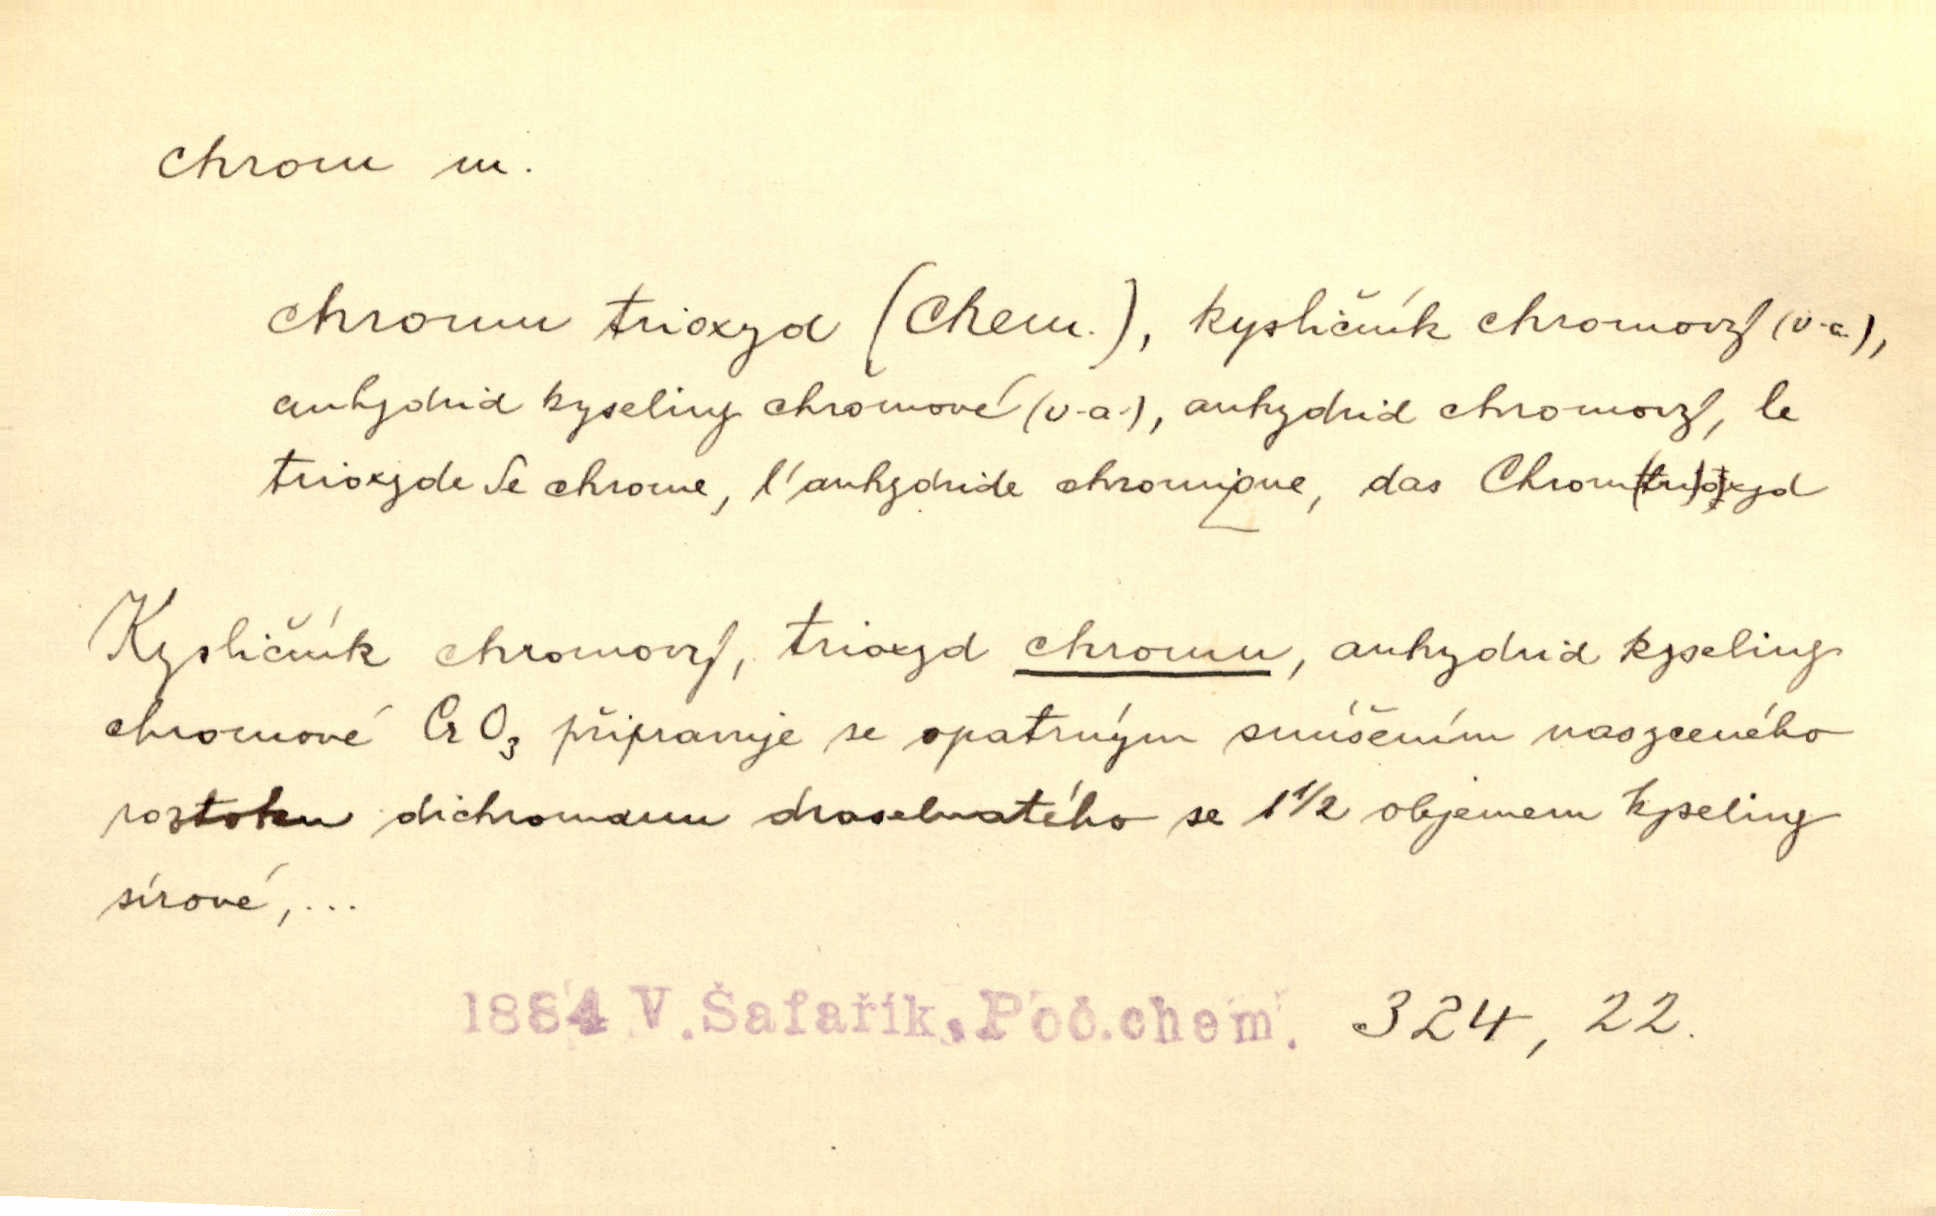 chrom m.
chromu trioxyd (Chem.), kysličník chromový (v-a.),
anhydrid kyseliny chromové (v-a.), anhydrid chromový, le
trioxyde de chrome, l'anhydride chromique, das Chrom(tri)oxyd
Kysličník chromový, trioxyd chromu, anhydrid kyseliny
chromové CrO₃ připravuje se opatrným smíšením nasyceného
roztoku dichromanu draselnatého se 1 1/2 objemem kyseliny
sírové,...
1884 V. Šafařík, Poč.chem. 324, 22.